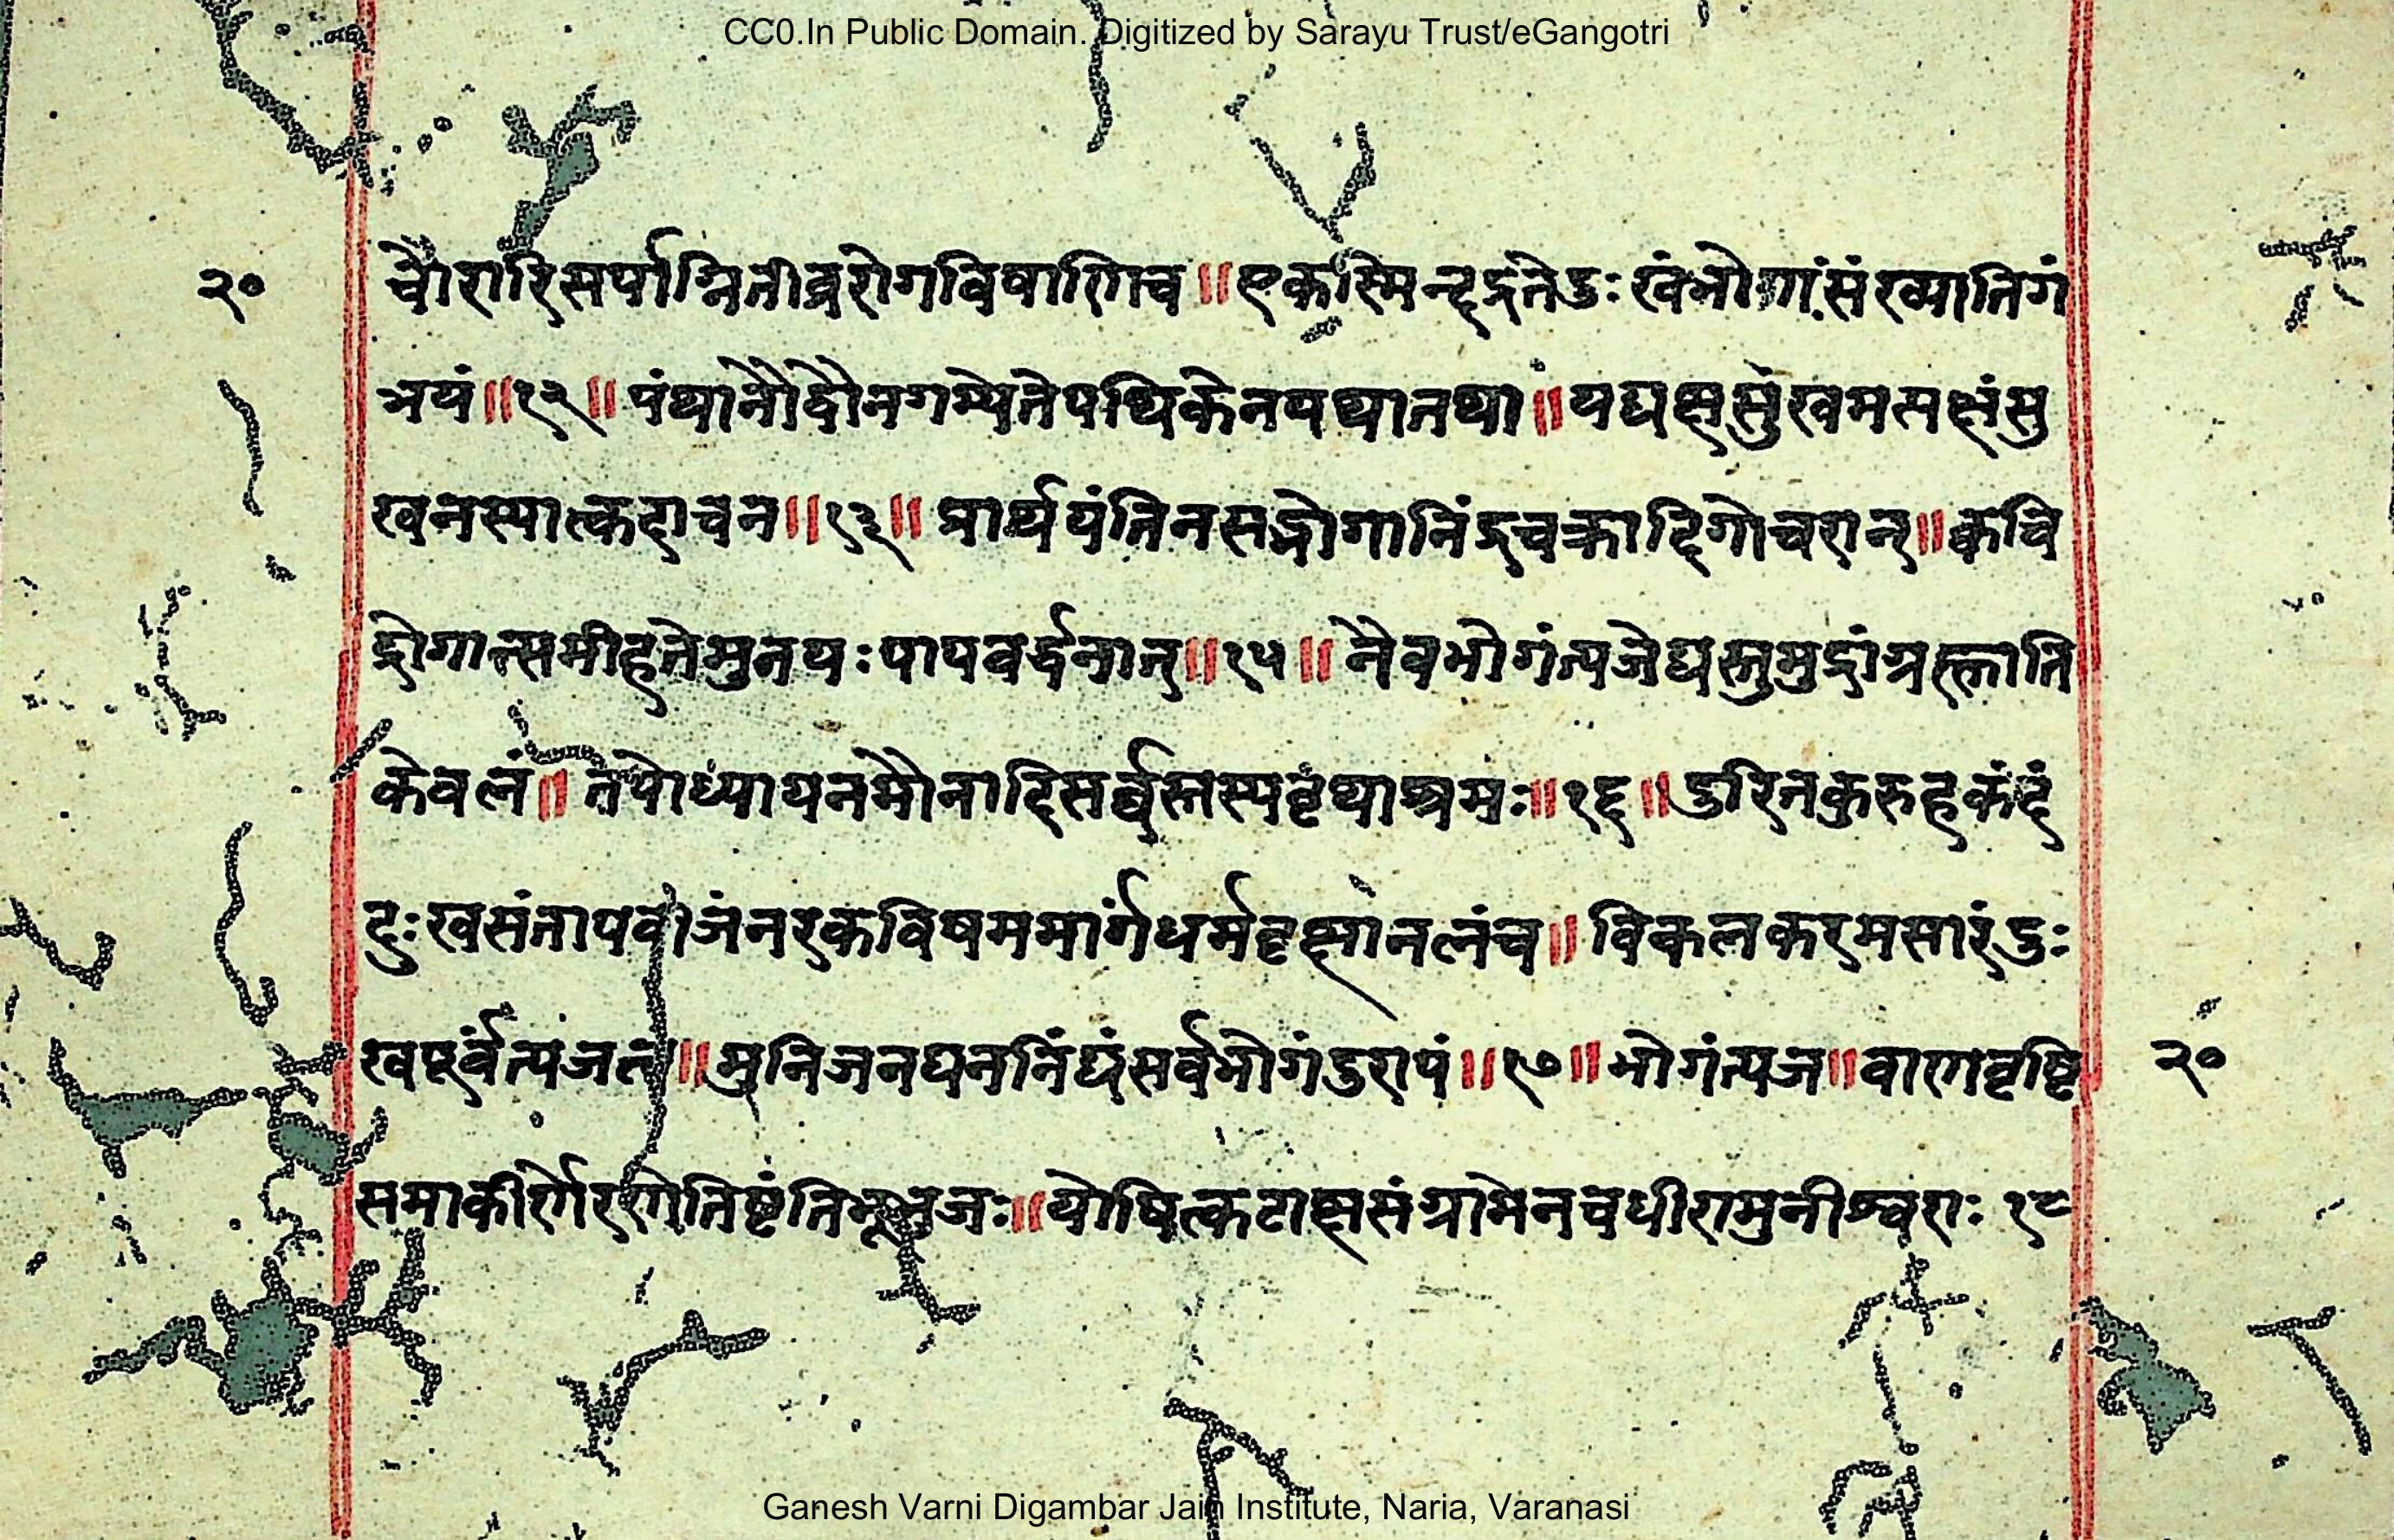 CC0.In Public Domain. Digitized by Sarayu Trust/eGangotri
२० चौरारिसर्पाग्नितीव्ररोगविषाणिच॥एकस्मिन्हृद्गतेदुःखंभोगांसंख्यातिगं
त्रयं॥१२॥पंथानौद्वौनगम्येतेपथिकेनयथातथा॥यद्यक्षसुखमत्मक्षंसु
खनस्यात्कदाचन॥१३॥प्रार्थयंतिनसद्भोगानिंद्रचक्रादिगोचरान्॥कवि
द्रोगात्समीहतेमुनयःपापवर्द्धनान्॥१५॥नैवभोगंत्यजेद्यस्तुमुद्रांग्रह्लाति
केवलं॥तपोध्यायनमौनादिसर्व्वस्तस्यवृथाश्रमः॥१६॥दुरितकुरुहकंदं
दुःखसंतापवीजंनरकविषममार्गंधर्मवृक्षानलंच॥विकलकरमसारंदुः
खपूर्वंत्यजत्वं॥मुनिजनघननिंद्यंसर्वभोगंदुरापं॥१७॥भोगंत्यज॥वाणवृष्टि २०
समाकीर्णेरणेतिष्टंतिभूभुजः॥योषित्कटाक्षसंग्रामेनचधीरामुनीश्वराः १८
Ganesh Varni Digambar Jain Institute, Naria, Varanasi